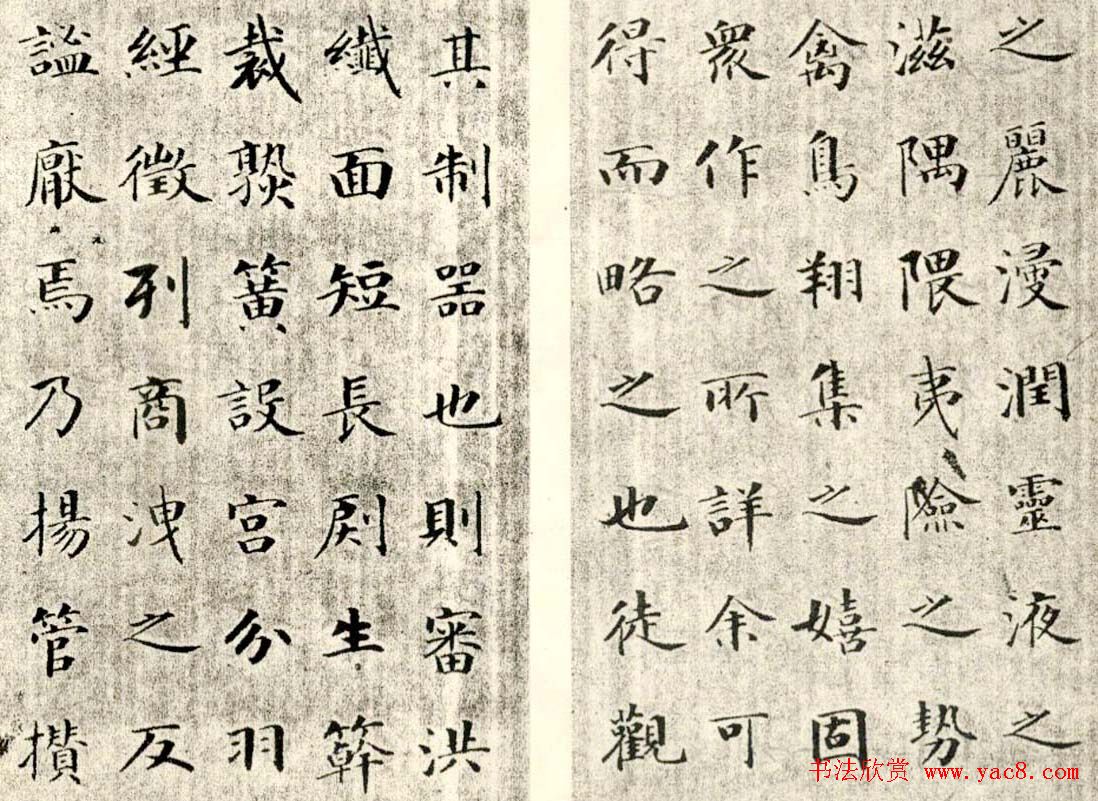 之麗浸潤靈液之
滋隅隈夷險之勢
禽鳥翔集之嬉固
衆作之所詳余可
得而略之也徒觀
其制噐也則審洪
纖面短長生簳
裁熟簧設宮分羽
經徵列商洩之反
謐厭焉乃揚管攢
书法欣赏 www.yac8.com